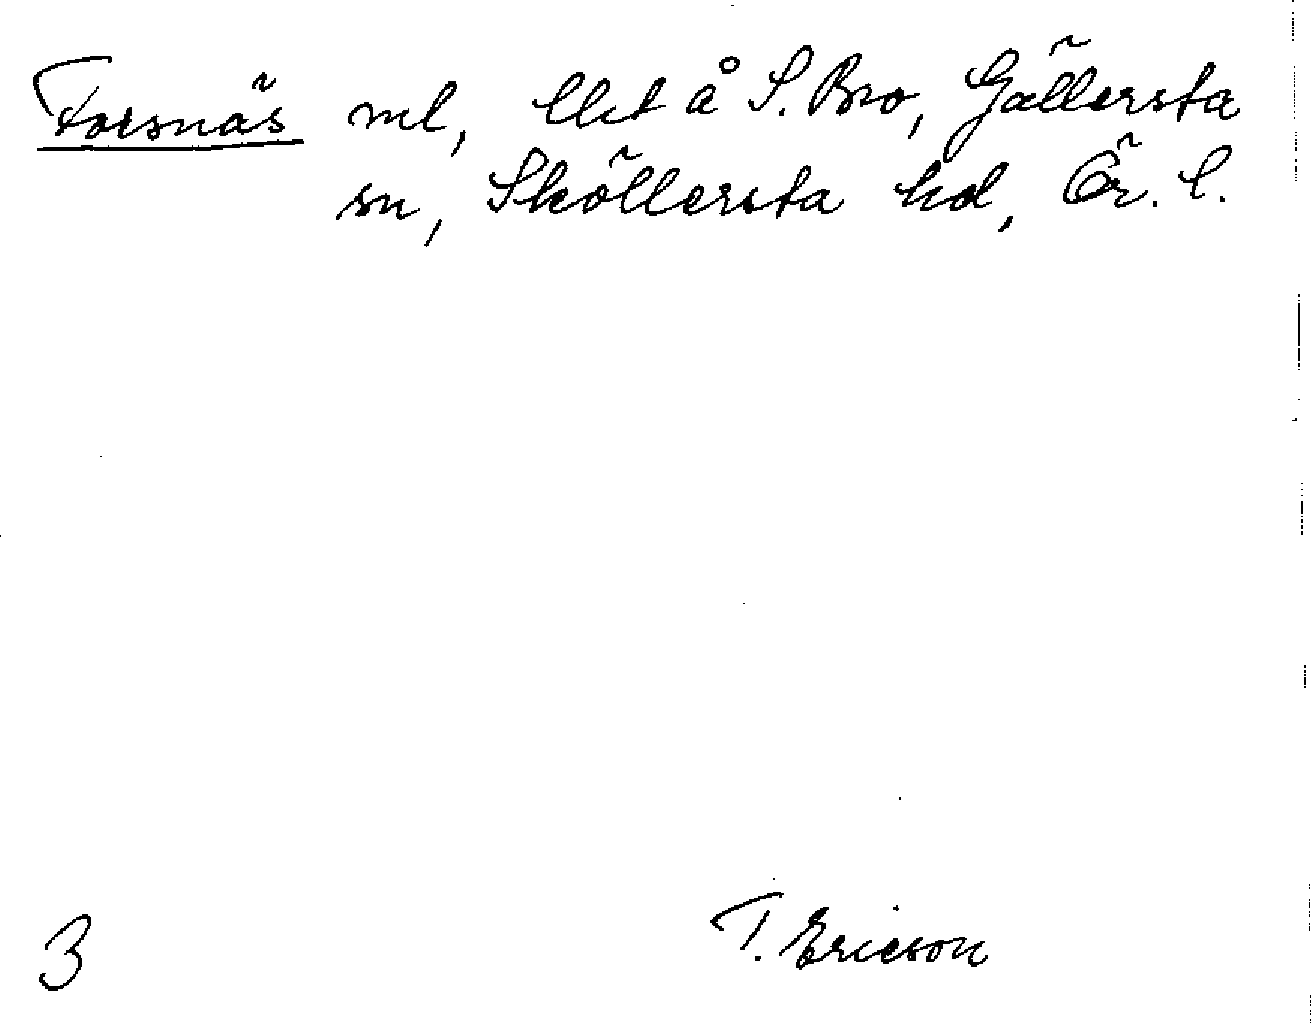 Forsnäs ml, llet å S. Bro, Gällersta
sn, Sköllersta hd, Ör. l.
3
T. Ericson